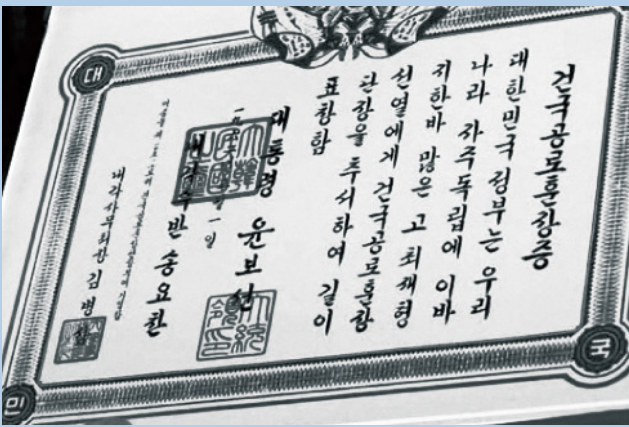 건국공로훈장증
대한민국 정부는 우리
나라 자주독립에 이바
지한바 많은 고 최재형
선열에게 건국공로훈장
단장을 추서하여 길이
표창함
一일
대통령 윤보선
내각수반 송요찬
내각사무처장 김병삼
大韓民國之璽
大統領印
대
국
민